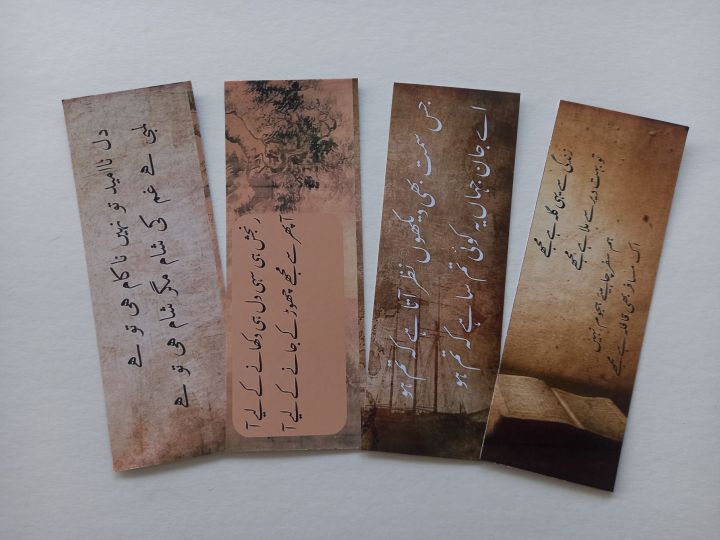 دل ناامید تو نہیں ناکام ہی تو ہے
لمبی ہے غم کی شام مگر شام ہی تو ہے
رنجش ہی سہی دل ہی دکھانے کے لیے آ
آ پھر سے مجھے چھوڑ کے جانے کے لیے آ
جس سمت بھی دیکھوں نظر آتا ہے کہ تم ہو
اے جان جہاں یہ کوئی تم سا ہے کہ تم ہو
زندگی سے یہی گلہ ہے مجھے
تو بہت دیر سے ملا ہے مجھے
ہم سفر چاہیئے ہجوم نہیں
اک مسافر بھی قافلہ ہے مجھے